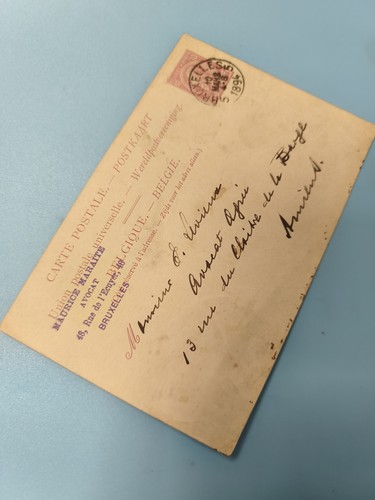 CARTE POSTALE. — POSTKAART
Union postale universelle. — Wereldpostvereeniging.
BELGIQUE. — BELGIE.
réservé à l'adresse. — Zijde voor het adres alleen.)
BRUXELLES 5
MAURICE MARAITE
AVOCAT
48, Rue de l'Ecuyer, 48
BRUXELLES
Monsieur E.
Avocat Agréé
13 rue du Cloître de la Barge
Amiens.